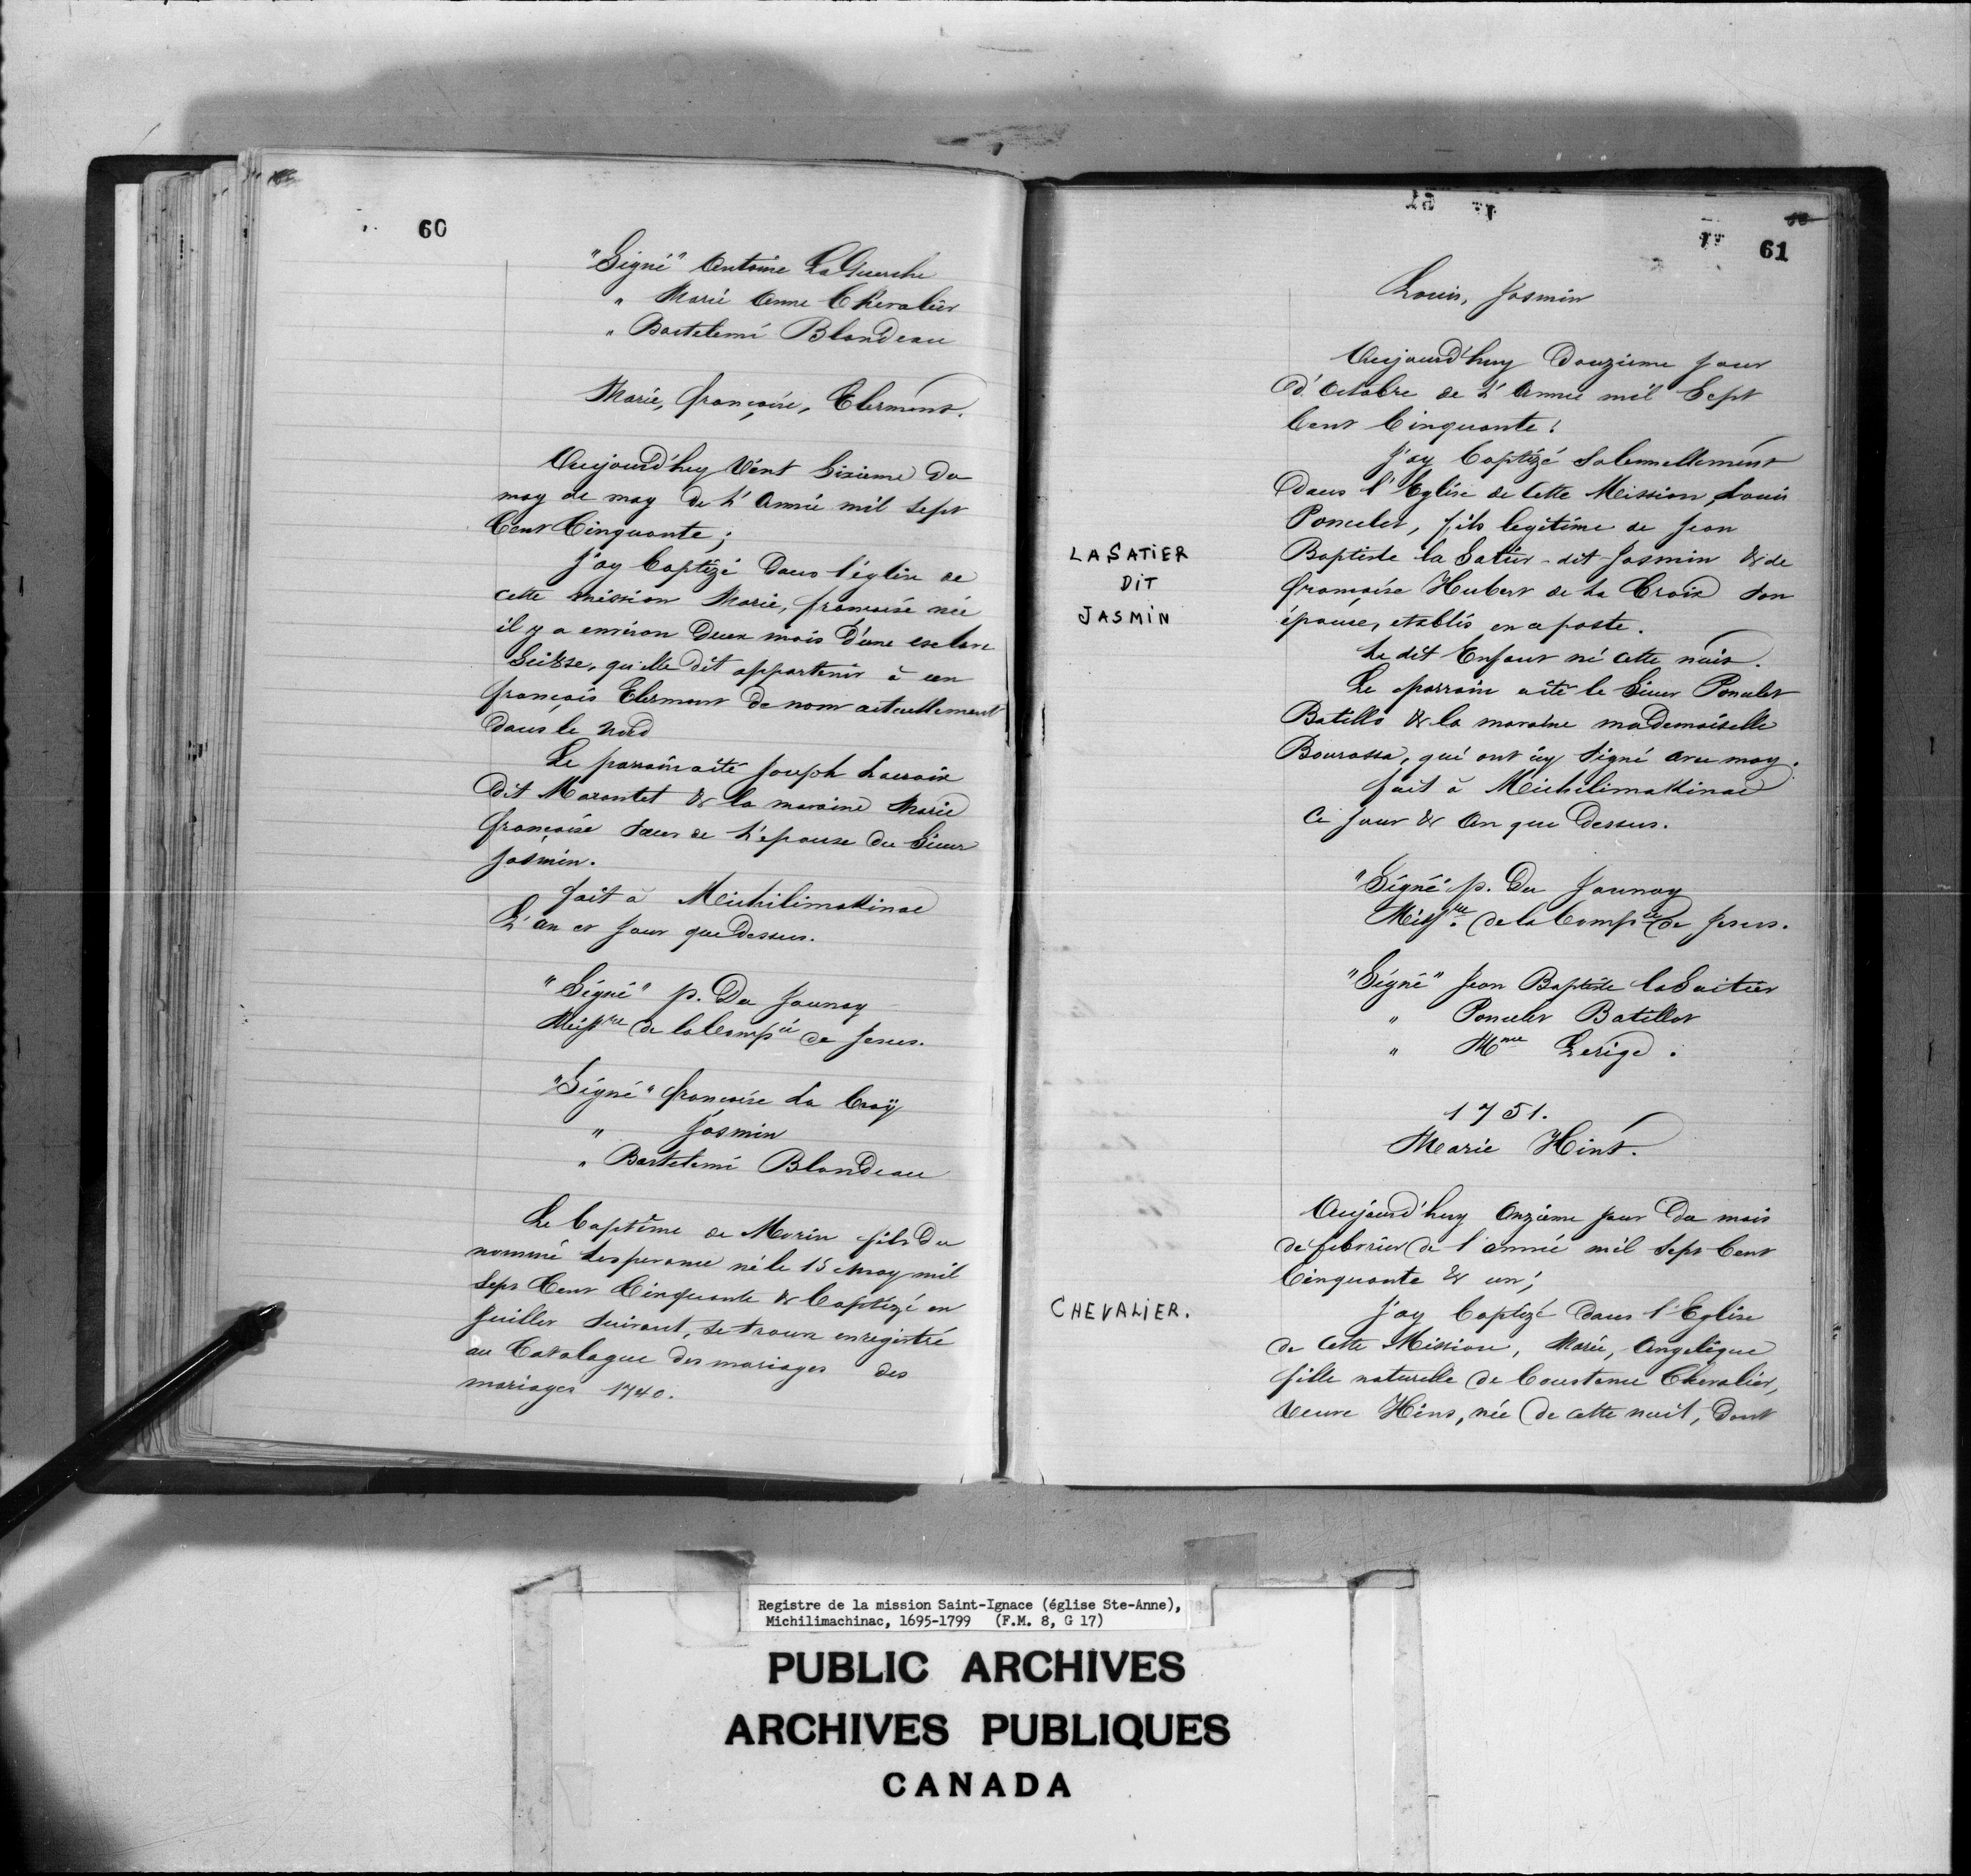 60
"Signé" Antoine La Guerche
" Marie Anne Chevalier
" Bartelemi Blondeau
Marie, françoise, Clermont.
Aujourd'huy Vint Sixieme du
moy de may de L'Année mil sept
Cent Cinquante;
J'ay baptizé dans l'église de
cette mission Marie, françoise née
il y a environ deux mois d'une esclave
Suisse, qu'elle dit appartenir à un
françois Clermont de nom actuellement
dans le nord
Le parrain a été Joseph Lacroix
dit Marantet & la maraine Marie
françoise soeur de L'epouse du Sieur
Jasmin.
fait à Michilimakinac
L'an et jour que dessus.
"Signé" p. Du Jaunay
Missre de la Compie de Jesus.
"Signé" françoise La Croÿ
" Jasmin
" Bartelemi Blondeau
Le baptême de Morin fils du
nommé Lesperance né le 15 may mil
Sept Cent Cinquante & baptizé en
Juillet suivant, se trouve enregistré
au Catalogue des mariages des
mariages 1740.
61
Louis, Jasmin
Aujourd'huy Douzieme jour
d'Octobre de L'Année mil Sept
Cent Cinquante;
J'ay baptizé Solennellement
Dans l'Eglise de Cette Mission, Louis
Poncelet, fils legitime de Jean
LASATIER
DIT
JASMIN
Baptiste la Satier - dit Jasmin & de
françoise Hubert de La Croix son
épouse, etablis en ce poste.
Le dit Enfant né cette nuit.
Le parrain a été le Sieur Poncelet
Batillo & la maraine mademoiselle
Bourassa, qui ont icy signé avec moy.
fait à Michilimakinac
Ce jour & An que Dessus.
"Signé p. Du Jaunay
Missre. de la Compie de Jesus.
"Signé" Jean Baptiste la Saitier
" Poncelet Batillot
" Mme Lerige.
1751.
Marie Hins.
Aujourd'huy Onzieme jour Du mois
de febvrier de l'année mil Sept Cent
Cinquante & un;
CHEVALIER.
J'ay baptizé dans l'Eglise
de Cette Mission, Marie, Angelique
fille naturelle de Constance Chevalier,
Veuve Hins, née de cette nuit, dont
Registre de la mission Saint-Ignace (église Ste-Anne),
Michilimachinac, 1695-1799 (F.M. 8, G 17)
PUBLIC ARCHIVES
ARCHIVES PUBLIQUES
CANADA